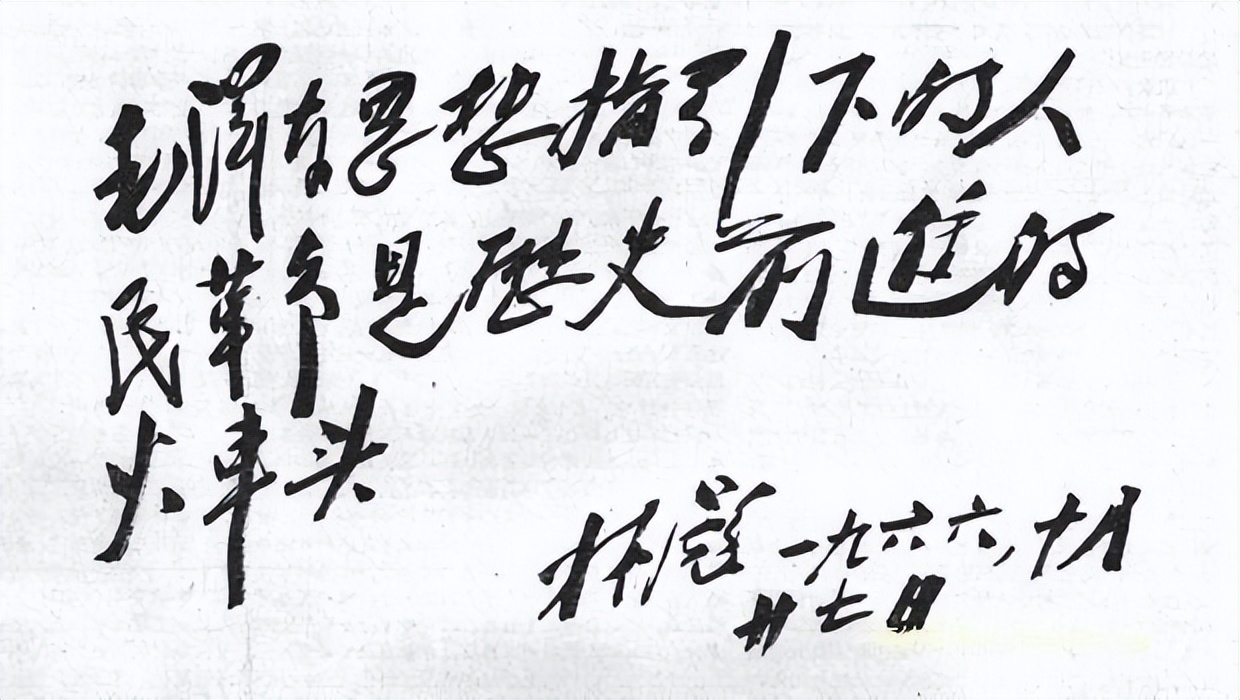 毛澤东思想指引下的人
民革命是歷史前進的
火車头
林彪 一九六六,十月
廿七日